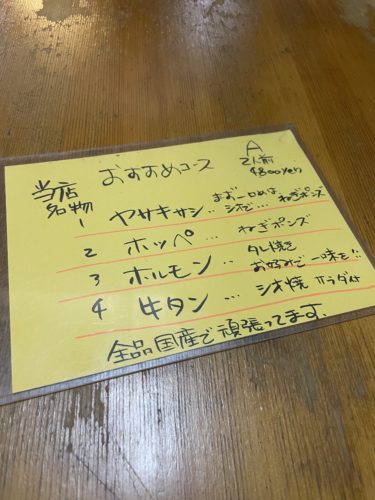 おすすめコース
A
2人前
4800yen
当店
名物
1 ヤサキサシ… まず一口めは、シオで… ねぎポンズ
2 ホッペ … ねぎポンズ
3 ホルモン … タレ焼き お好みで一味を!!
4 牛タン … シオ焼
全品国産で頑張ってます.